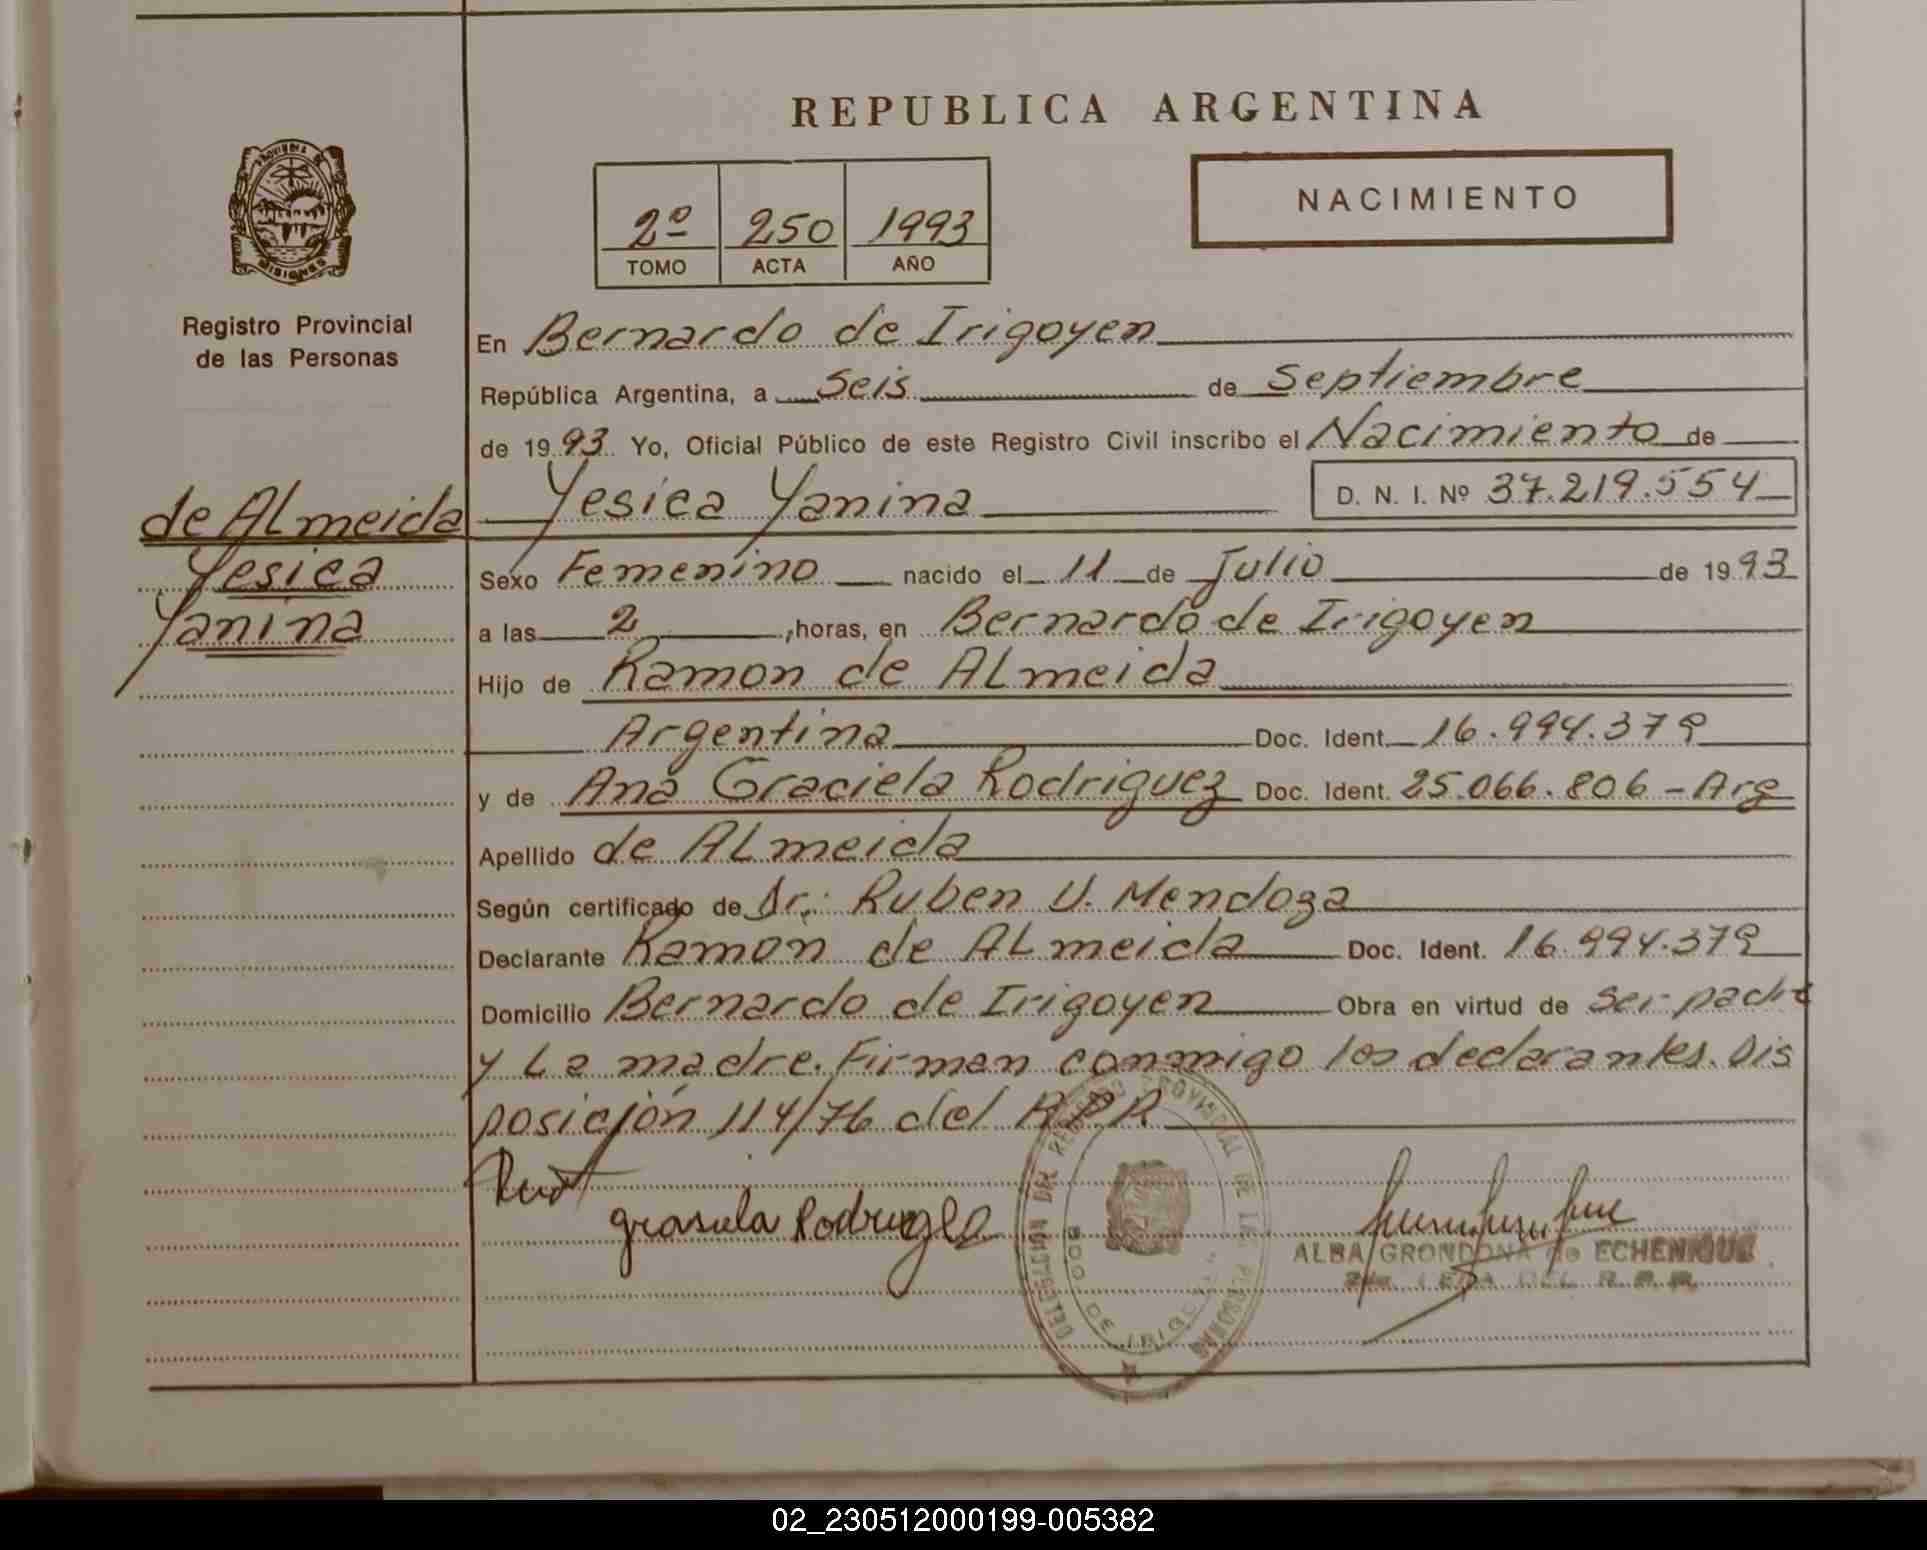 REPUBLICA ARGENTINA
PROVINCIA DE
MISIONES
Registro Provincial
de las Personas
2º 250 1993
TOMO ACTA AÑO
NACIMIENTO
En Bernardo de Irigoyen
República Argentina, a Seis de Septiembre
de 1993 Yo, Oficial Público de este Registro Civil inscribo el Nacimiento de
de ALmeida
Yesica
Yanina
Yesica Yanina D. N. I. Nº 37.219.554
Sexo Femenino nacido el 11 de Julio de 1993
a las 2, horas, en Bernardo de Irigoyen
Hijo de Ramon de ALmeida
Argentina Doc. Ident. 16.994.379
y de Ana Graciela Rodriguez Doc. Ident. 25.066.806 - Arg
Apellido de ALmeida
Según certificado de Dr.: Ruben U. Mendoza
Declarante Ramon de ALmeida Doc. Ident. 16.994.379
Domicilio Bernardo de Irigoyen Obra en virtud de ser padre
y La madre. Firman conmigo los declarantes. Dis
posición 114/76 del RPR
DELEGACION DEL REGISTRO PROVINCIAL DE LAS PERSONAS
BDO. DE IRIGOYEN
ALBA GRONDONA de ECHENIQUE
02_230512000199-005382